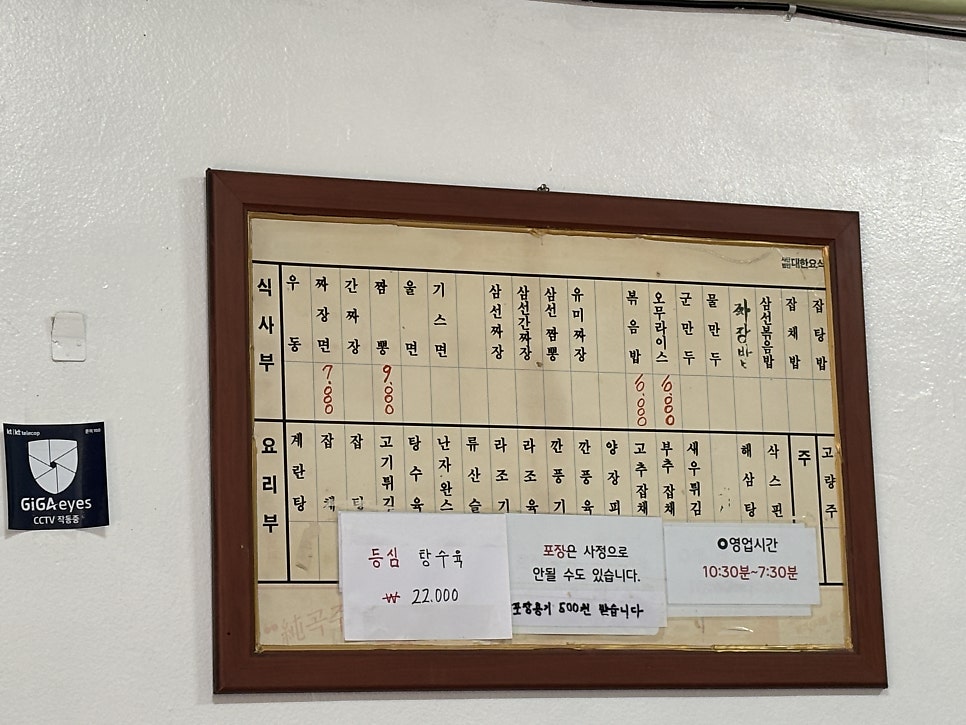 대한요식
식사부
우동
짜장면
7.000
간짜장
짬뽕
9.000
울면
기스면
삼선짜장
삼선간짜장
삼선짬뽕
유미짜장
볶음밥
오무라이스
군만두
물만두
짜장밥
삼선볶음밥
잡채밥
잡탕밥
요리부
계란탕
잡채
잡탕
고기튀김
탕수육
난자완스
류산슬
라조기
라조육
깐풍기
깐풍육
양장피
고추잡채
부추잡채
새우튀김
해삼탕
삭스핀
주
고량주
등심 탕수육
₩ 22.000
포장은 사정으로
안될 수도 있습니다.
포장용기 500원 받습니다
영업시간
10:30분~7:30분
kt | kt telecop
GiGA eyes
CCTV 작동중